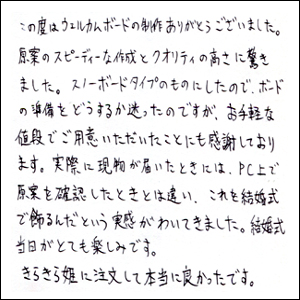 この度はウェルカムボードの制作ありがとうございました。
原案のスピーディーな作成とクオリティの高さに驚き
ました。スノーボードタイプのものにしたので、ボード
の準備をどうするか迷ったのですが、お手軽な
値段でご用意いただいたことにも感謝しており
ます。実際に現物が届いたときには、PC上で
原案を確認したときとは違い、これを結婚式
で飾るんだという実感がわいてきました。結婚式
当日がとても楽しみです。
きらきら姫に注文して本当に良かったです。